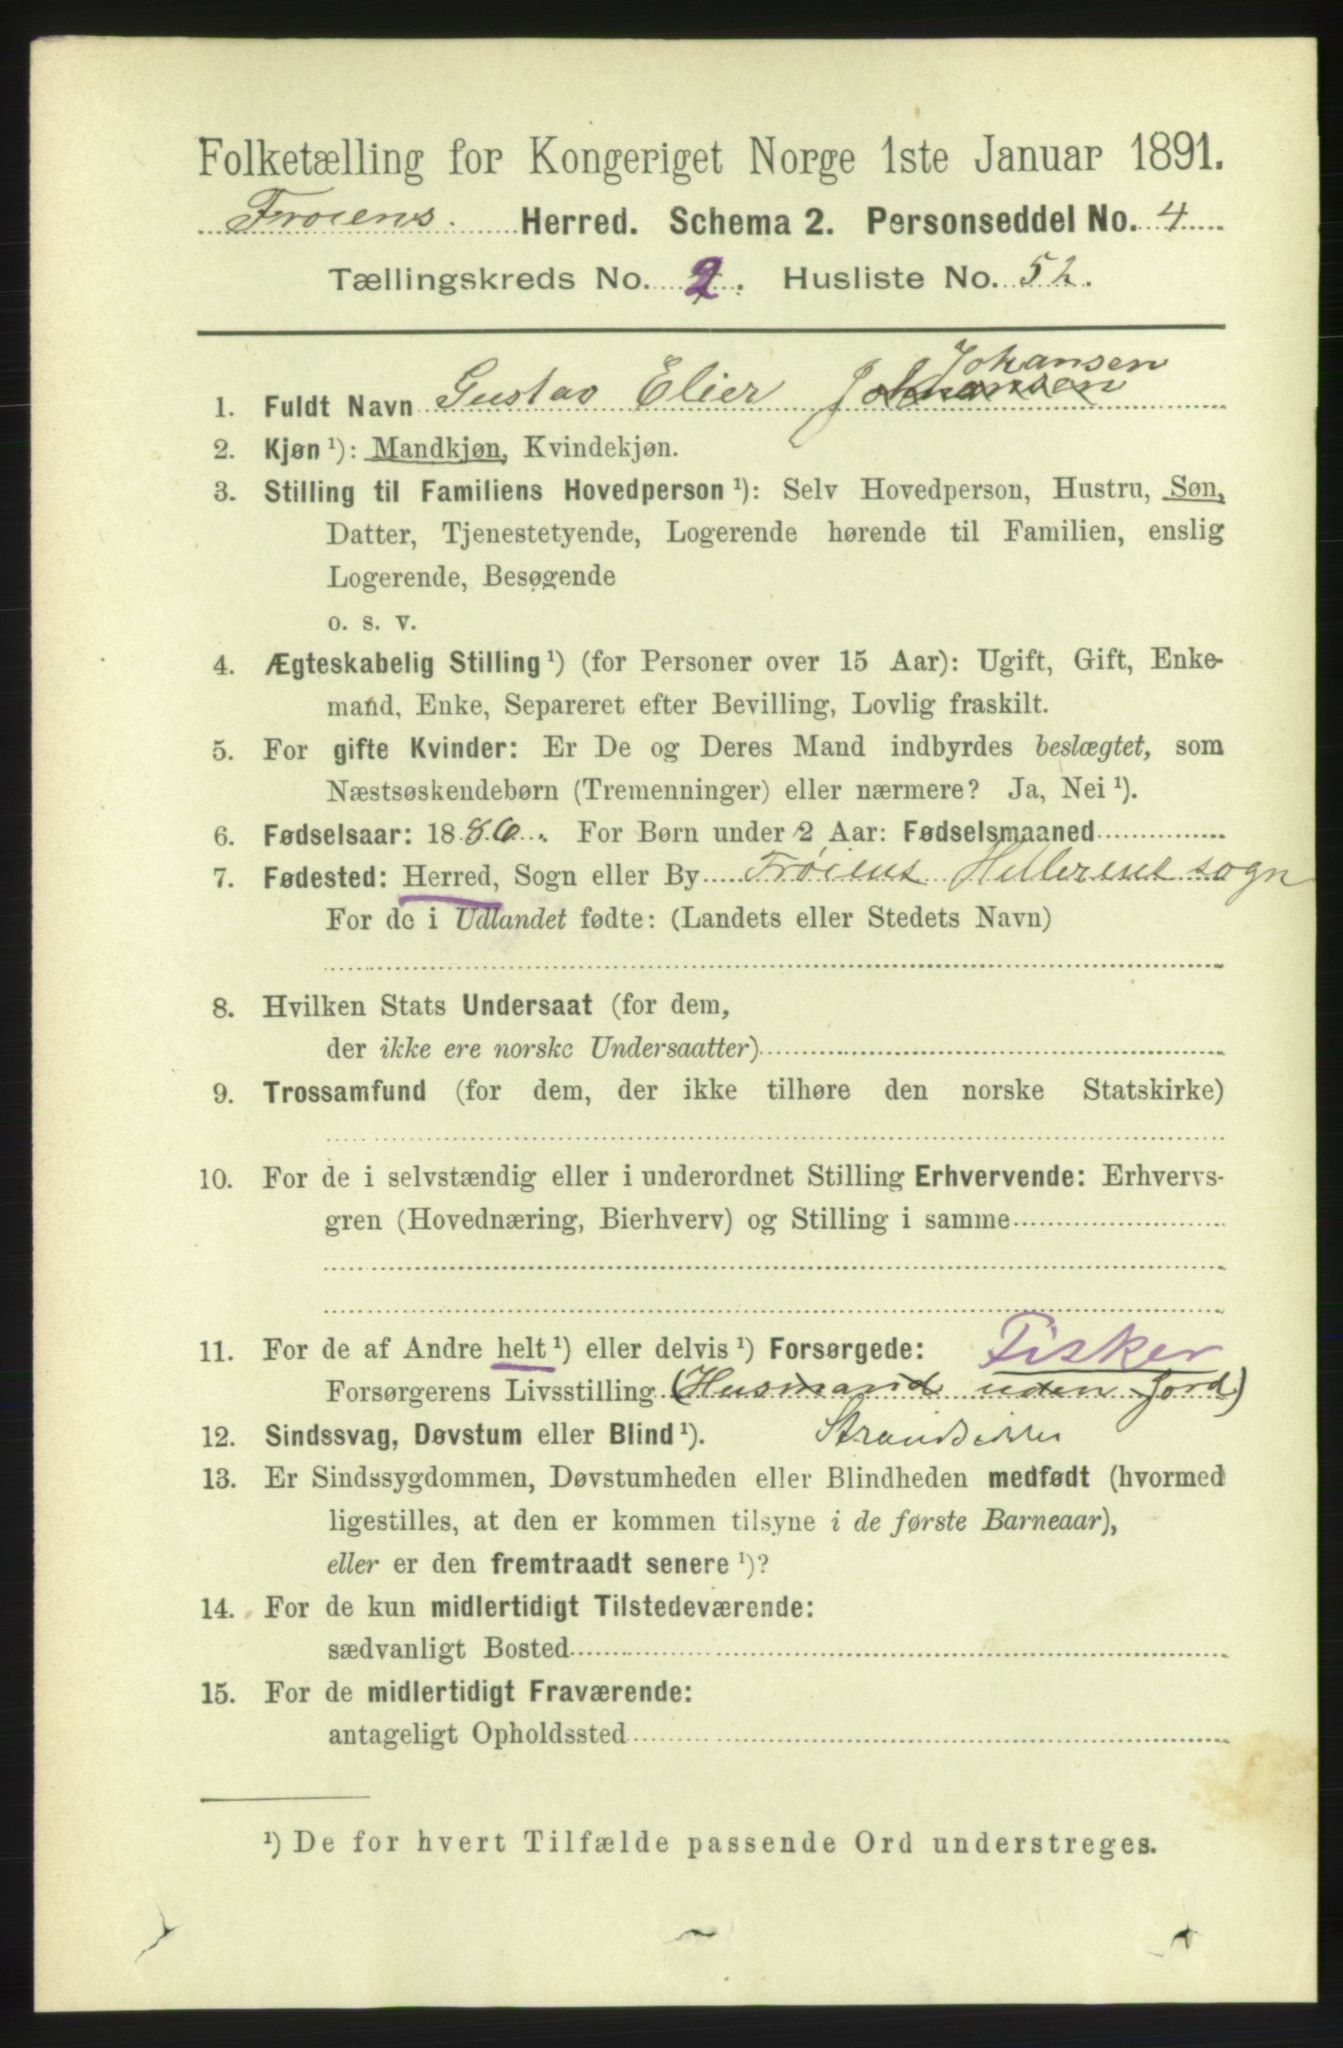 Folketælling for Kongeriget Norge 1ste Januar 1891.
Froiens. Herred. Schema 2. Personseddel No. 4
Tællingskreds No. 2. Husliste No. 52.
Johansen
1. Fuldt Navn Gustav Elier Johansen
2. Kjøn ¹): Mandkjøn, Kvindekjøn.
3. Stilling til Familiens Hovedperson ¹): Selv Hovedperson, Hustru, Søn,
Datter, Tjenestetyende, Logerende hørende til Familien, enslig
Logerende, Besøgende
o. s. v.
4. Ægteskabelig Stilling ¹) (for Personer over 15 Aar): Ugift, Gift, Enke-
mand, Enke, Separeret efter Bevilling, Lovlig fraskilt.
5. For gifte Kvinder: Er De og Deres Mand indbyrdes beslægtet, som
Næstsøskendebørn (Tremenninger) eller nærmere? Ja, Nei ¹).
6. Fødselsaar: 1886. For Børn under 2 Aar: Fødselsmaaned
7. Fødested: Herred, Sogn eller By Frøiens sogn
For de i Udlandet fødte: (Landets eller Stedets Navn)
8. Hvilken Stats Undersaat (for dem,
der ikke ere norske Undersaatter)
9. Trossamfund (for dem, der ikke tilhøre den norske Statskirke)
10. For de i selvstændig eller i underordnet Stilling Erhvervende: Erhvervs-
gren (Hovednæring, Bierhverv) og Stilling i samme
11. For de af Andre helt ¹) eller delvis ¹) Forsørgede: Fisker
Forsørgerens Livsstilling (Husmand uden Jord)
12. Sindssvag, Døvstum eller Blind ¹).
13. Er Sindssygdommen, Døvstumheden eller Blindheden medfødt (hvormed
ligestilles, at den er kommen tilsyne i de første Barneaar),
eller er den fremtraadt senere ¹)?
14. For de kun midlertidigt Tilstedeværende:
sædvanligt Bosted
15. For de midlertidigt Fraværende:
antageligt Opholdssted
¹) De for hvert Tilfælde passende Ord understreges.